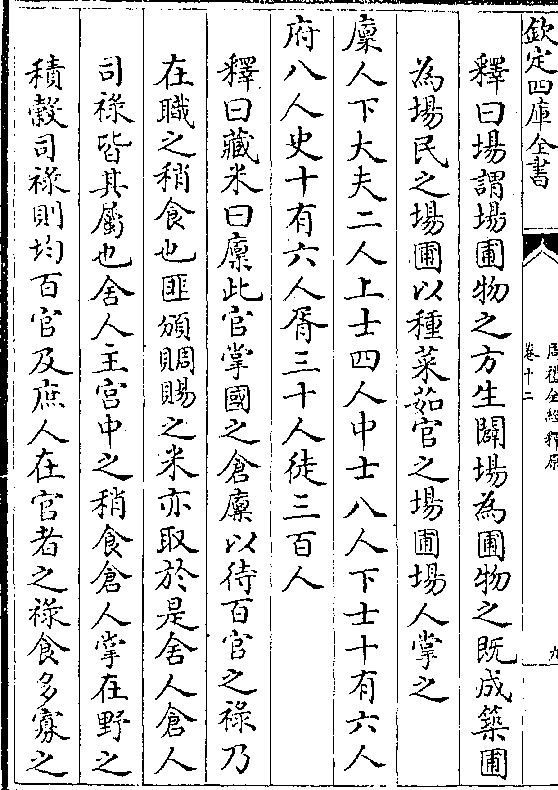 欽定四庫全書
周禮全經釋原
卷十二
九
釋曰場謂場圃物之方生闢場為圃物之既成築圃
為場民之場圃以種菜茹官之場圃場人掌之
廩人下大夫二人上士四人中士八人下士十有六人
府八人史十有六人胥三十人徒三百人
釋曰藏米曰廩此官掌國之倉廩以待百官之祿乃
在職之稍食也匪頒賙賜之米亦取於是舍人倉人
司祿皆其屬也舍人主宮中之稍食倉人掌在野之
積穀司祿則均百官及庶人在官者之祿食多寡之